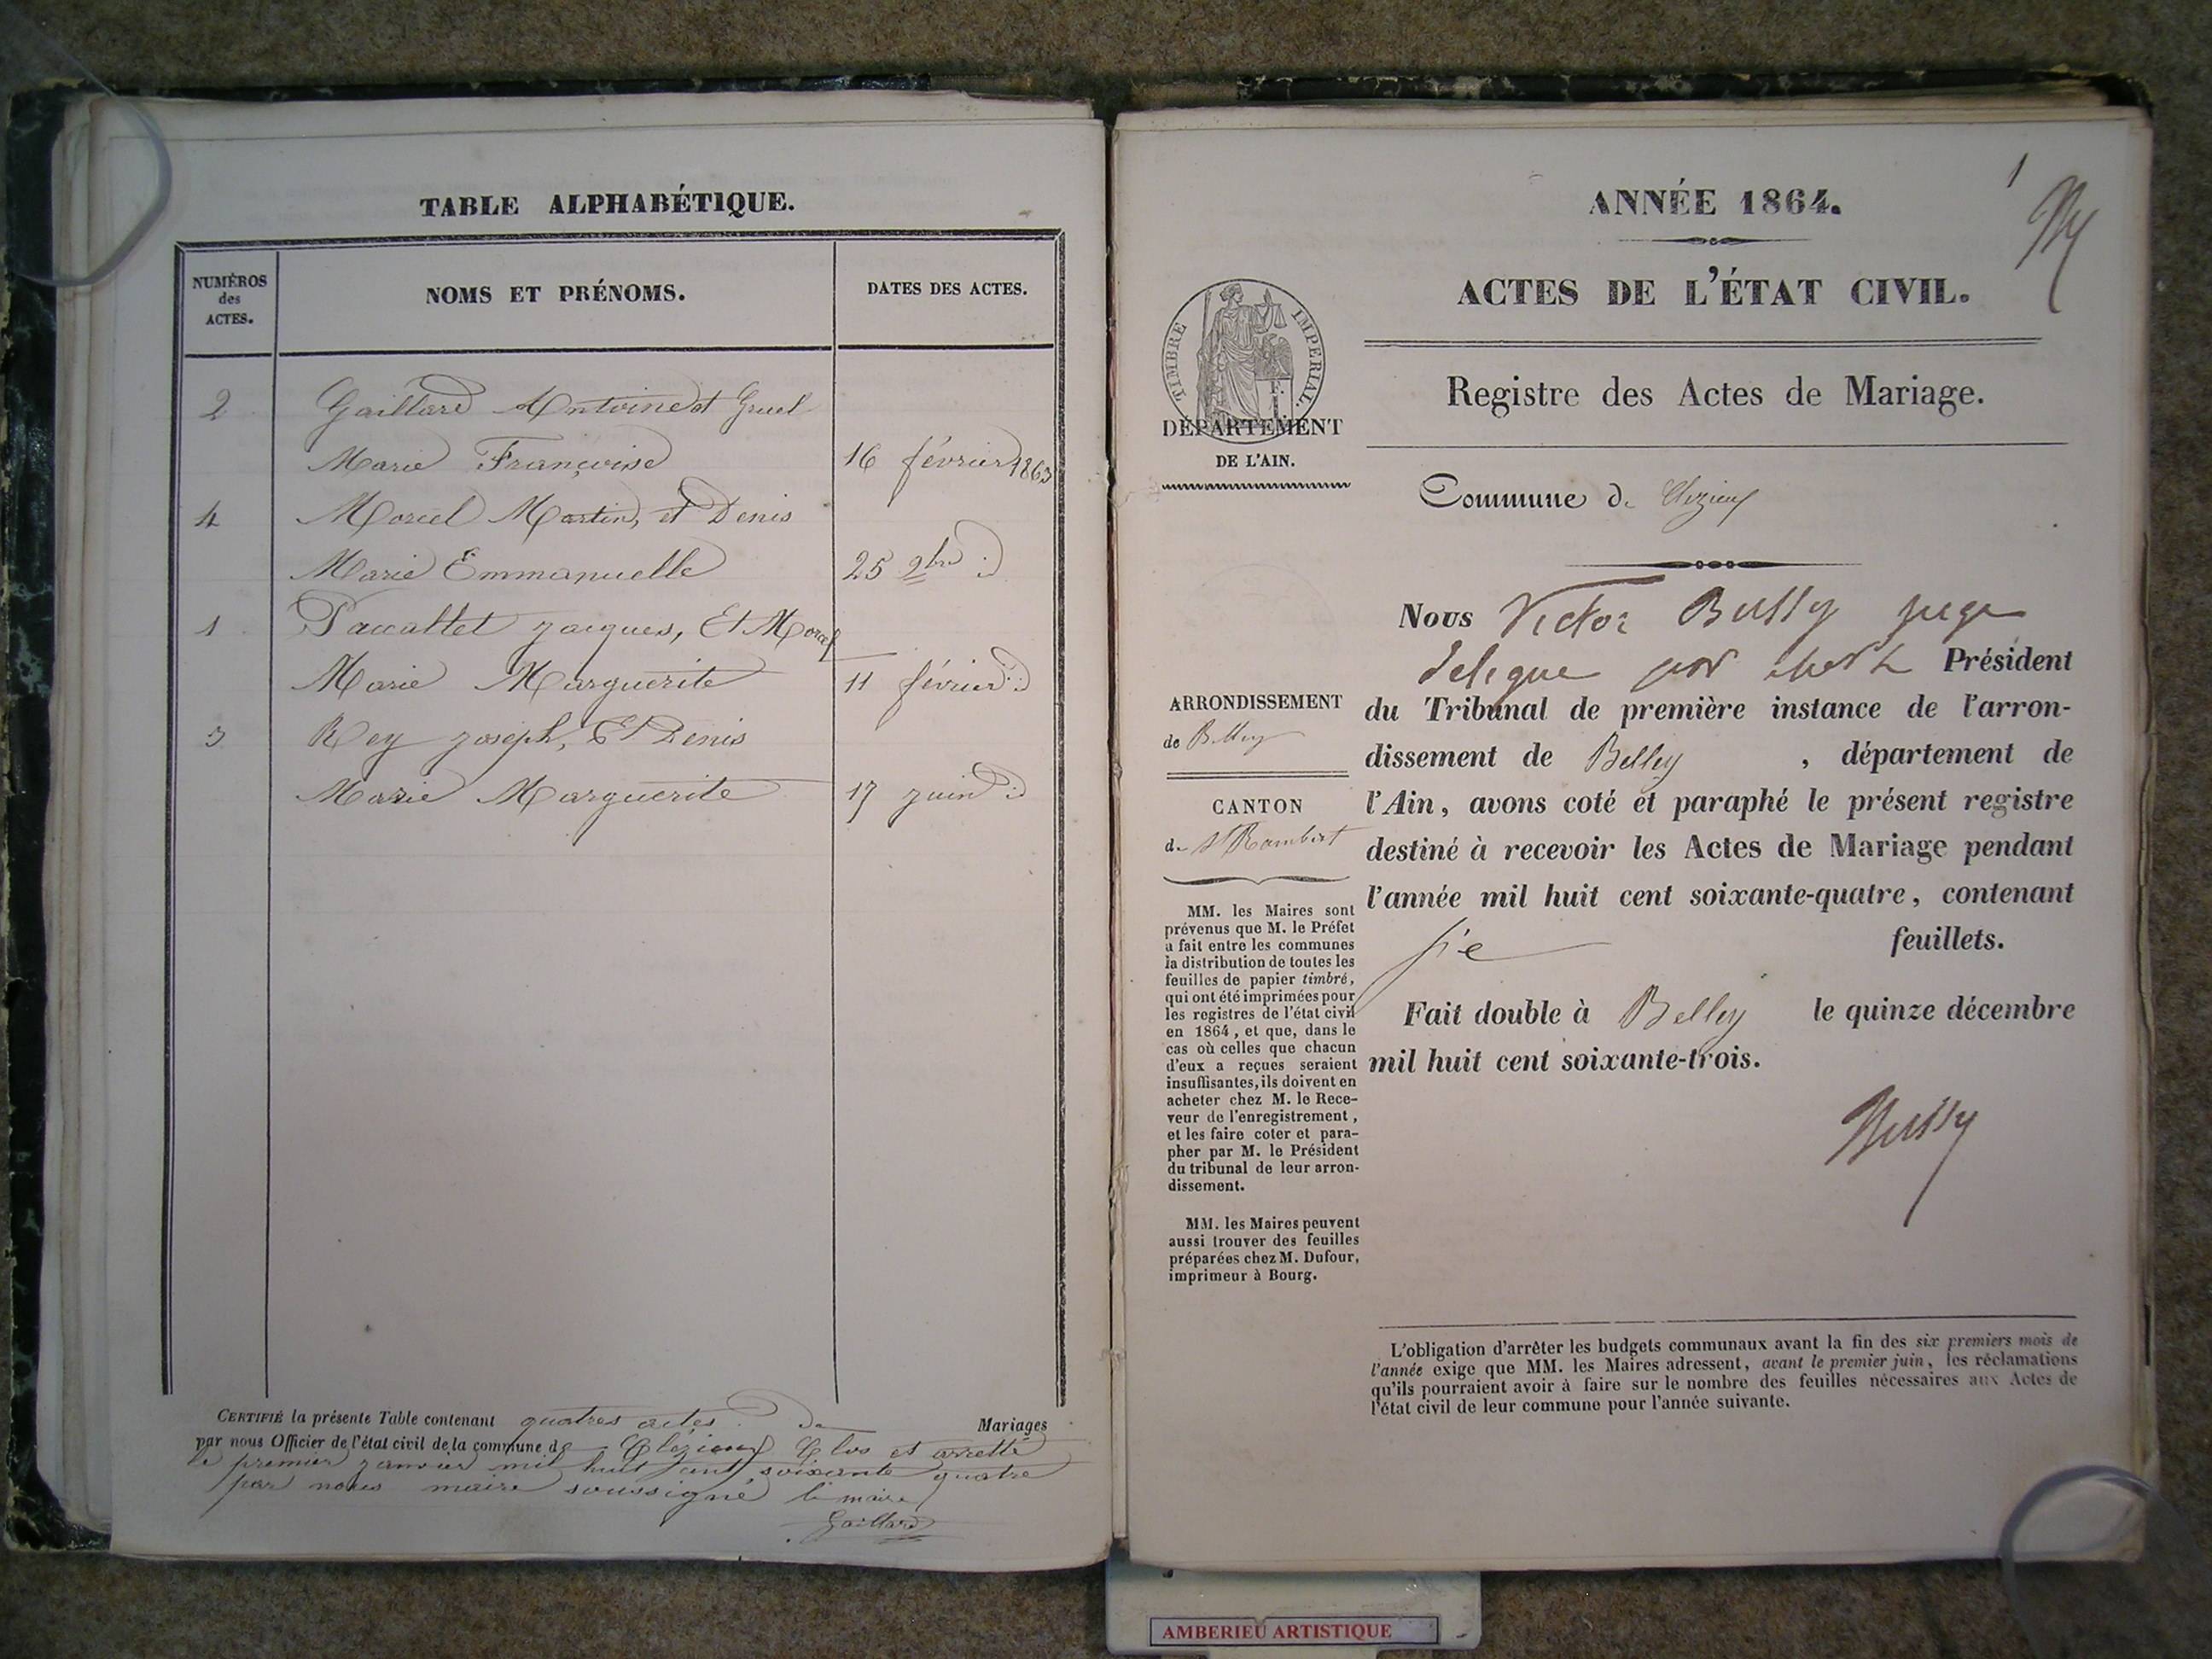 TABLE ALPHABÉTIQUE.
NUMÉROS
des
ACTES.
NOMS ET PRÉNOMS.
DATES DES ACTES.
2 Gaillard Antoine et Gruel
Marie Françoise 16 février 1863
4 Morcel Martin, et Denis
Marie Emmanuelle 25 9bre id
1 Paccallet jacques, Et Morcel
Marie Marguerite 11 février id
3 Rey joseph, Et Denis
Marie Marguerite 17 juin id
CERTIFIÉ la présente Table contenant quatres actes de Mariages
par nous Officier de l'état civil de la commune de Cleyzieux Clos et arretté
le premier janvier mil huit cent soixante quatre
par nous maire soussigné le maire
Gaillard
1
ANNÉE 1864.
ACTES DE L'ÉTAT CIVIL.
TIMBRE IMPERIAL.
1 F.
DÉPARTEMENT
DE L'AIN.
Registre des Actes de Mariage.
Commune de Cleyzieu
ARRONDISSEMENT
de Belley
CANTON
de St Rambert
MM. les Maires sont
prévenus que M. le Préfet
a fait entre les communes
la distribution de toutes les
feuilles de papier timbré,
qui ont été imprimées pour
les registres de l'état civil
en 1864, et que, dans le
cas où celles que chacun
d'eux a reçues seraient
insuffisantes, ils doivent en
acheter chez M. le Rece-
veur de l'enregistrement,
et les faire coter et para-
pher par M. le Président
du tribunal de leur arron-
dissement.
MM. les Maires peuvent
aussi trouver des feuilles
préparées chez M. Dufour,
imprimeur à Bourg.
Nous Victor Bussy juge
delegue par Président
du Tribunal de première instance de l'arron-
dissement de Belley , département de
l'Ain, avons coté et paraphé le présent registre
destiné à recevoir les Actes de Mariage pendant
l'année mil huit cent soixante-quatre, contenant
feuillets.
Fait double à Belley le quinze décembre
mil huit cent soixante-trois.
Bussy
L'obligation d'arrêter les budgets communaux avant la fin des six premiers mois de
l'année exige que MM. les Maires adressent, avant le premier juin, les réclamations
qu'ils pourraient avoir à faire sur le nombre des feuilles nécessaires aux Actes de
l'état civil de leur commune pour l'année suivante.
AMBERIEU ARTISTIQUE